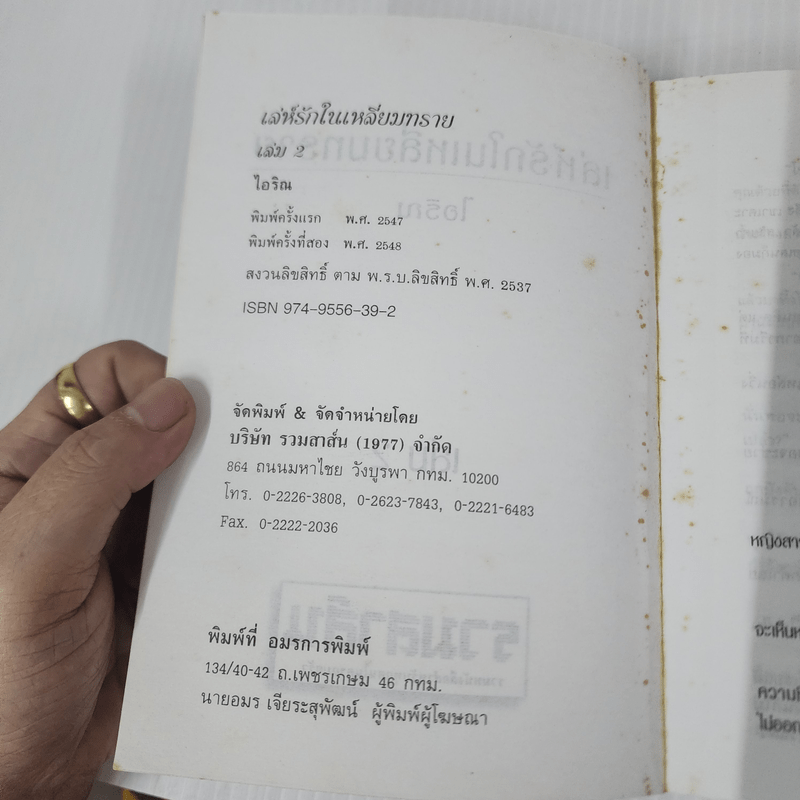 เล่ห์รักในเหลี่ยมทราย
เล่ม 2
ไอริณ
พิมพ์ครั้งแรก พ.ศ. 2547
พิมพ์ครั้งที่สอง พ.ศ. 2548
สงวนลิขสิทธิ์ ตาม พ.ร.บ.ลิขสิทธิ์ พ.ศ. 2537
ISBN 974-9556-39-2
จัดพิมพ์ & จัดจำหน่ายโดย
บริษัท รวมสาส์น (1977) จำกัด
864 ถนนมหาไชย วังบูรพา กทม. 10200
โทร. 0-2226-3808, 0-2623-7843, 0-2221-6483
Fax. 0-2222-2036
พิมพ์ที่ อมรการพิมพ์
134/40-42 ถ.เพชรเกษม 46 กทม.
นายอมร เจียระสุพัฒน์ ผู้พิมพ์ผู้โฆษณา
จะเห็น
ไม่ออก